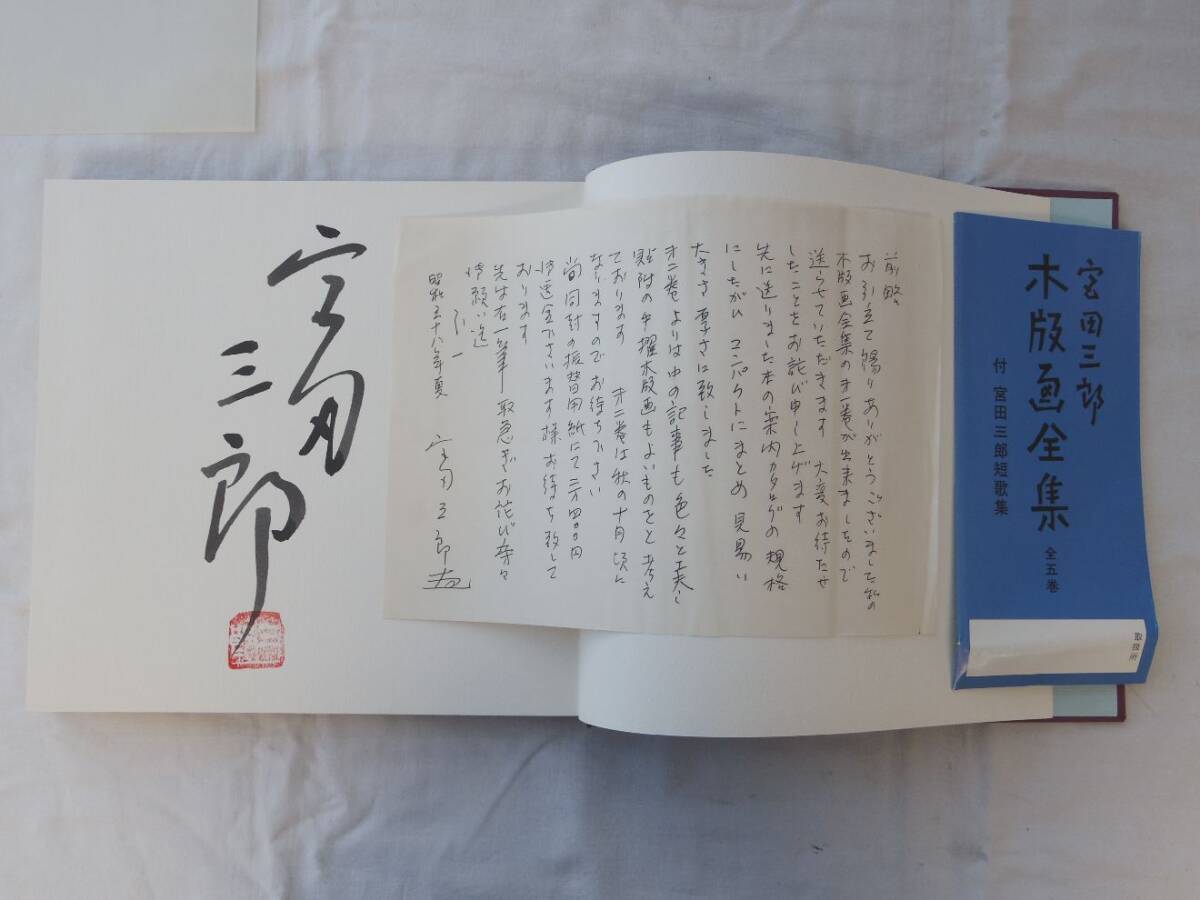 宮田三郎
木版画全集
全五巻
付 宮田三郎短歌集
取扱所
前略
お引立て賜りありがとうございました 私の
木版画全集の才一巻が出来ましたので
送らせていただきます 大変お待たせ
したことをお詫び申し上げます
先に送りました本の案内カタログの規格
にしたがい コンパクトにまとめ 見易い
大きさ 厚さに致しました
才二巻よりは中の記事も色々と工夫し
貼附の手摺木版画もよいものをと考え
ております 才二巻は秋の十月頃に
なりますのでお待ち下さい
尚同封の振替用紙にて
御送金下さいます様お待ち致して
おります
先は右一筆 取急ぎお詫び旁々
御願い迄
昭和五十八年夏 宮田三郎
宮田
三郎